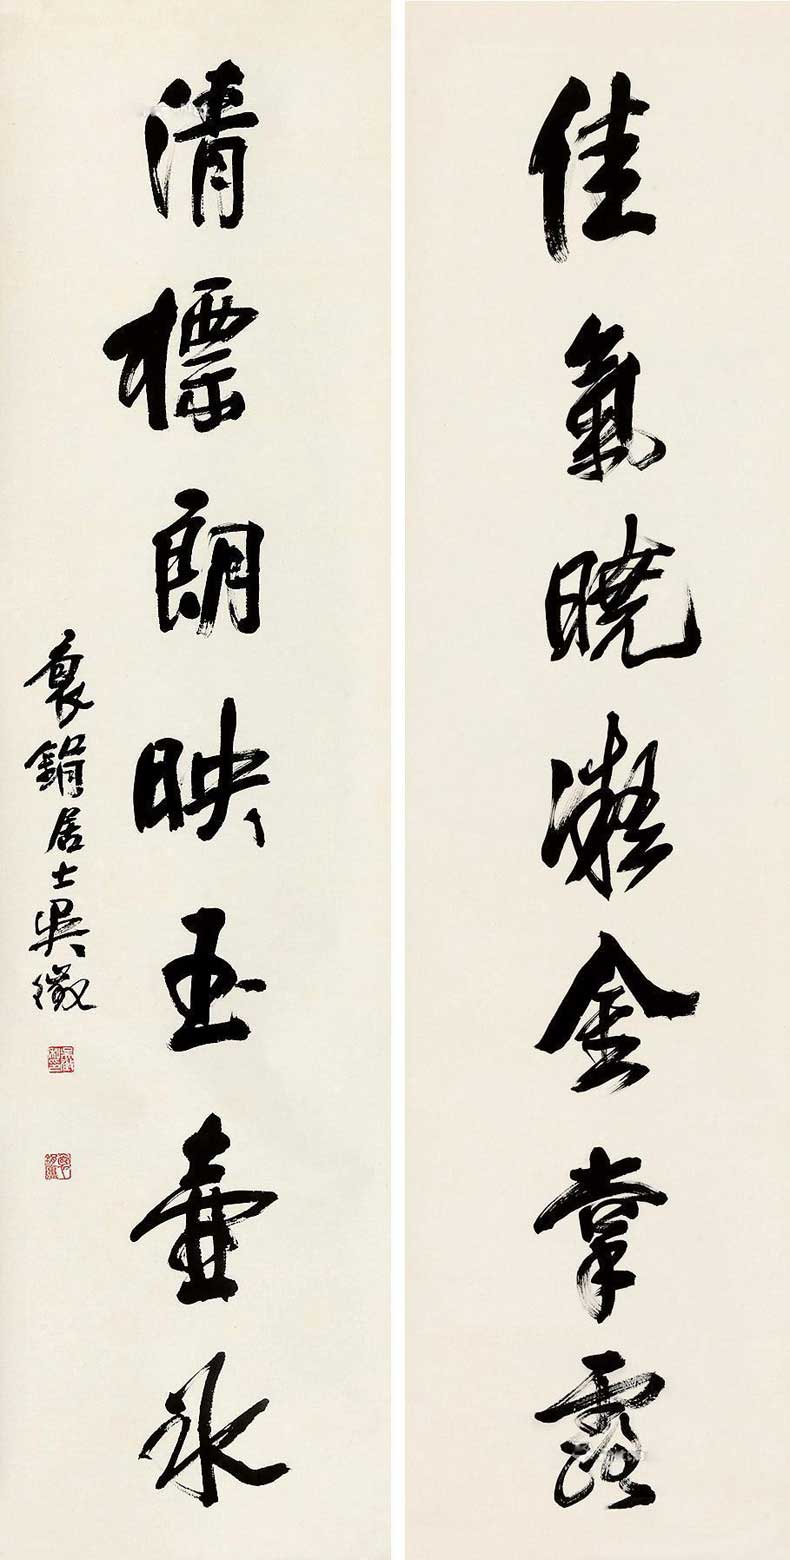 佳氣曉凝金掌露
清標朗映玉壺冰
裒鋗居士吳徵